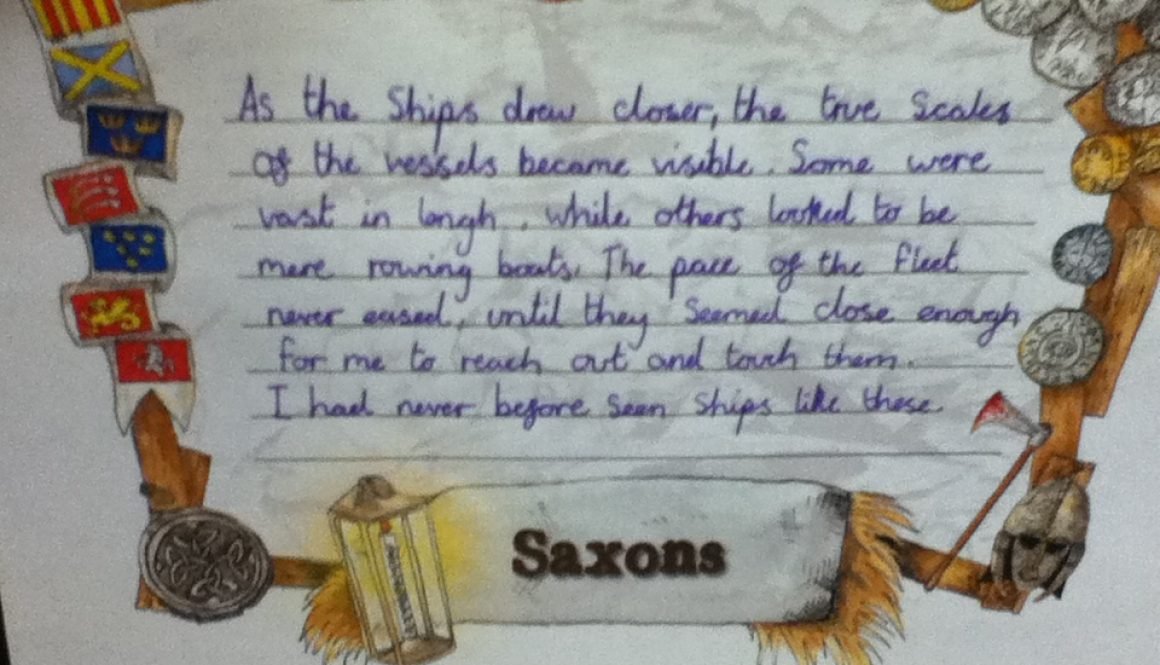 As the Ships drew closer, the true Scales
of the vessels became visible. Some were
vast in langh, while others looked to be
mere rowing boats. The pace of the fleet
never eased, until they Seemed close enough
for me to reach out and touch them.
I had never before seen ships like these.
Saxons